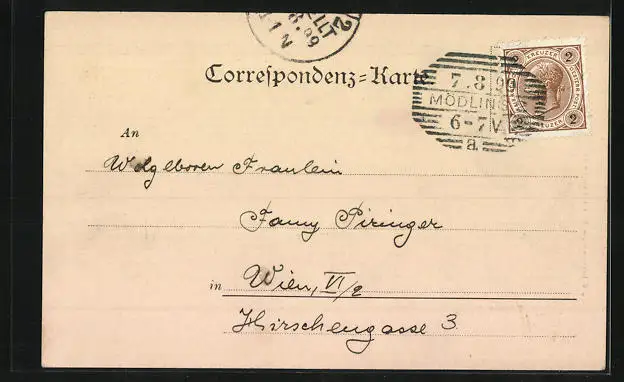 2
ELLT
8.99
1 N
Correspondenz=Karte
KREUZER
2 2
7.8.99
MÖDLING
6-7V
a
2 KREUZER 2
An
Wolgeboren Fraulein
Fanny Piringer
in Wien, VI/2
Hirschengasse 3